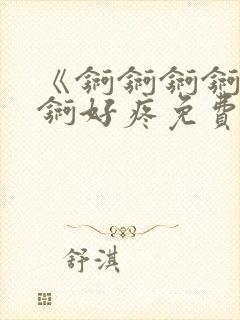 《锕锕锕锕
锕好疼免費
舒淇